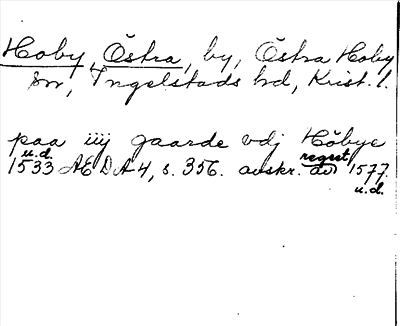 Hoby, Östra, by, Östra Hoby
sn, Ingelstads hd, Krist. l.
paa iiij gaarde vdj Höbye
u.d. regest
1533 AEDA 4, s. 356. avskr. av 1577.
u.d.